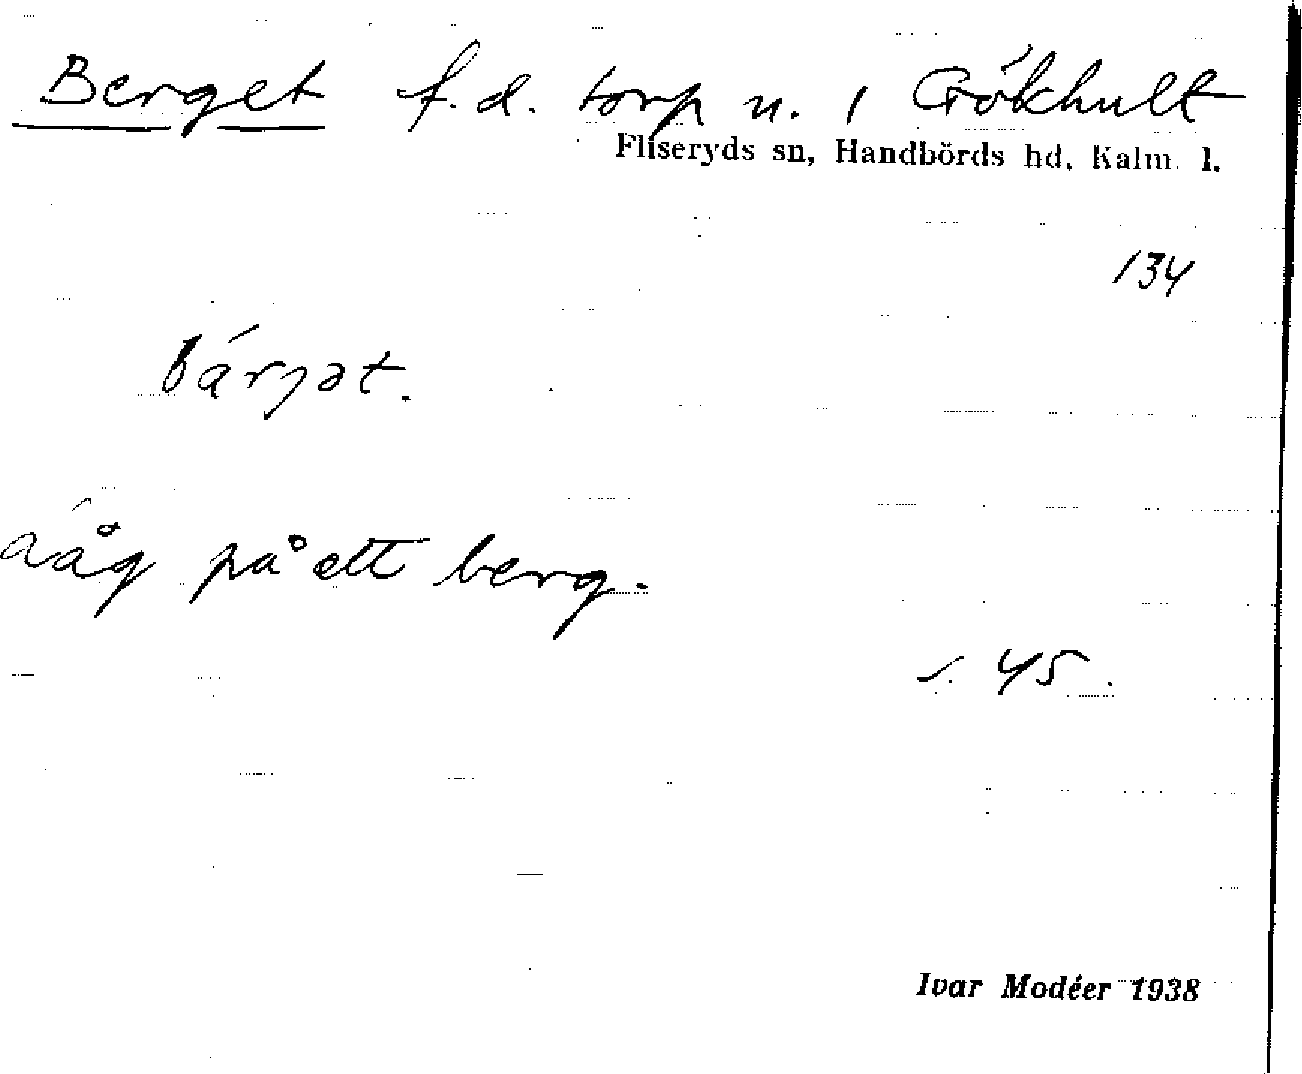 Berget f.d. torp u. 1 Grökhult
Fliseryds sn, Handbörds hd, Kalm. l.
134
bárjət.
Låg på ett berg.
s. 45.
Ivar Modéer 1938